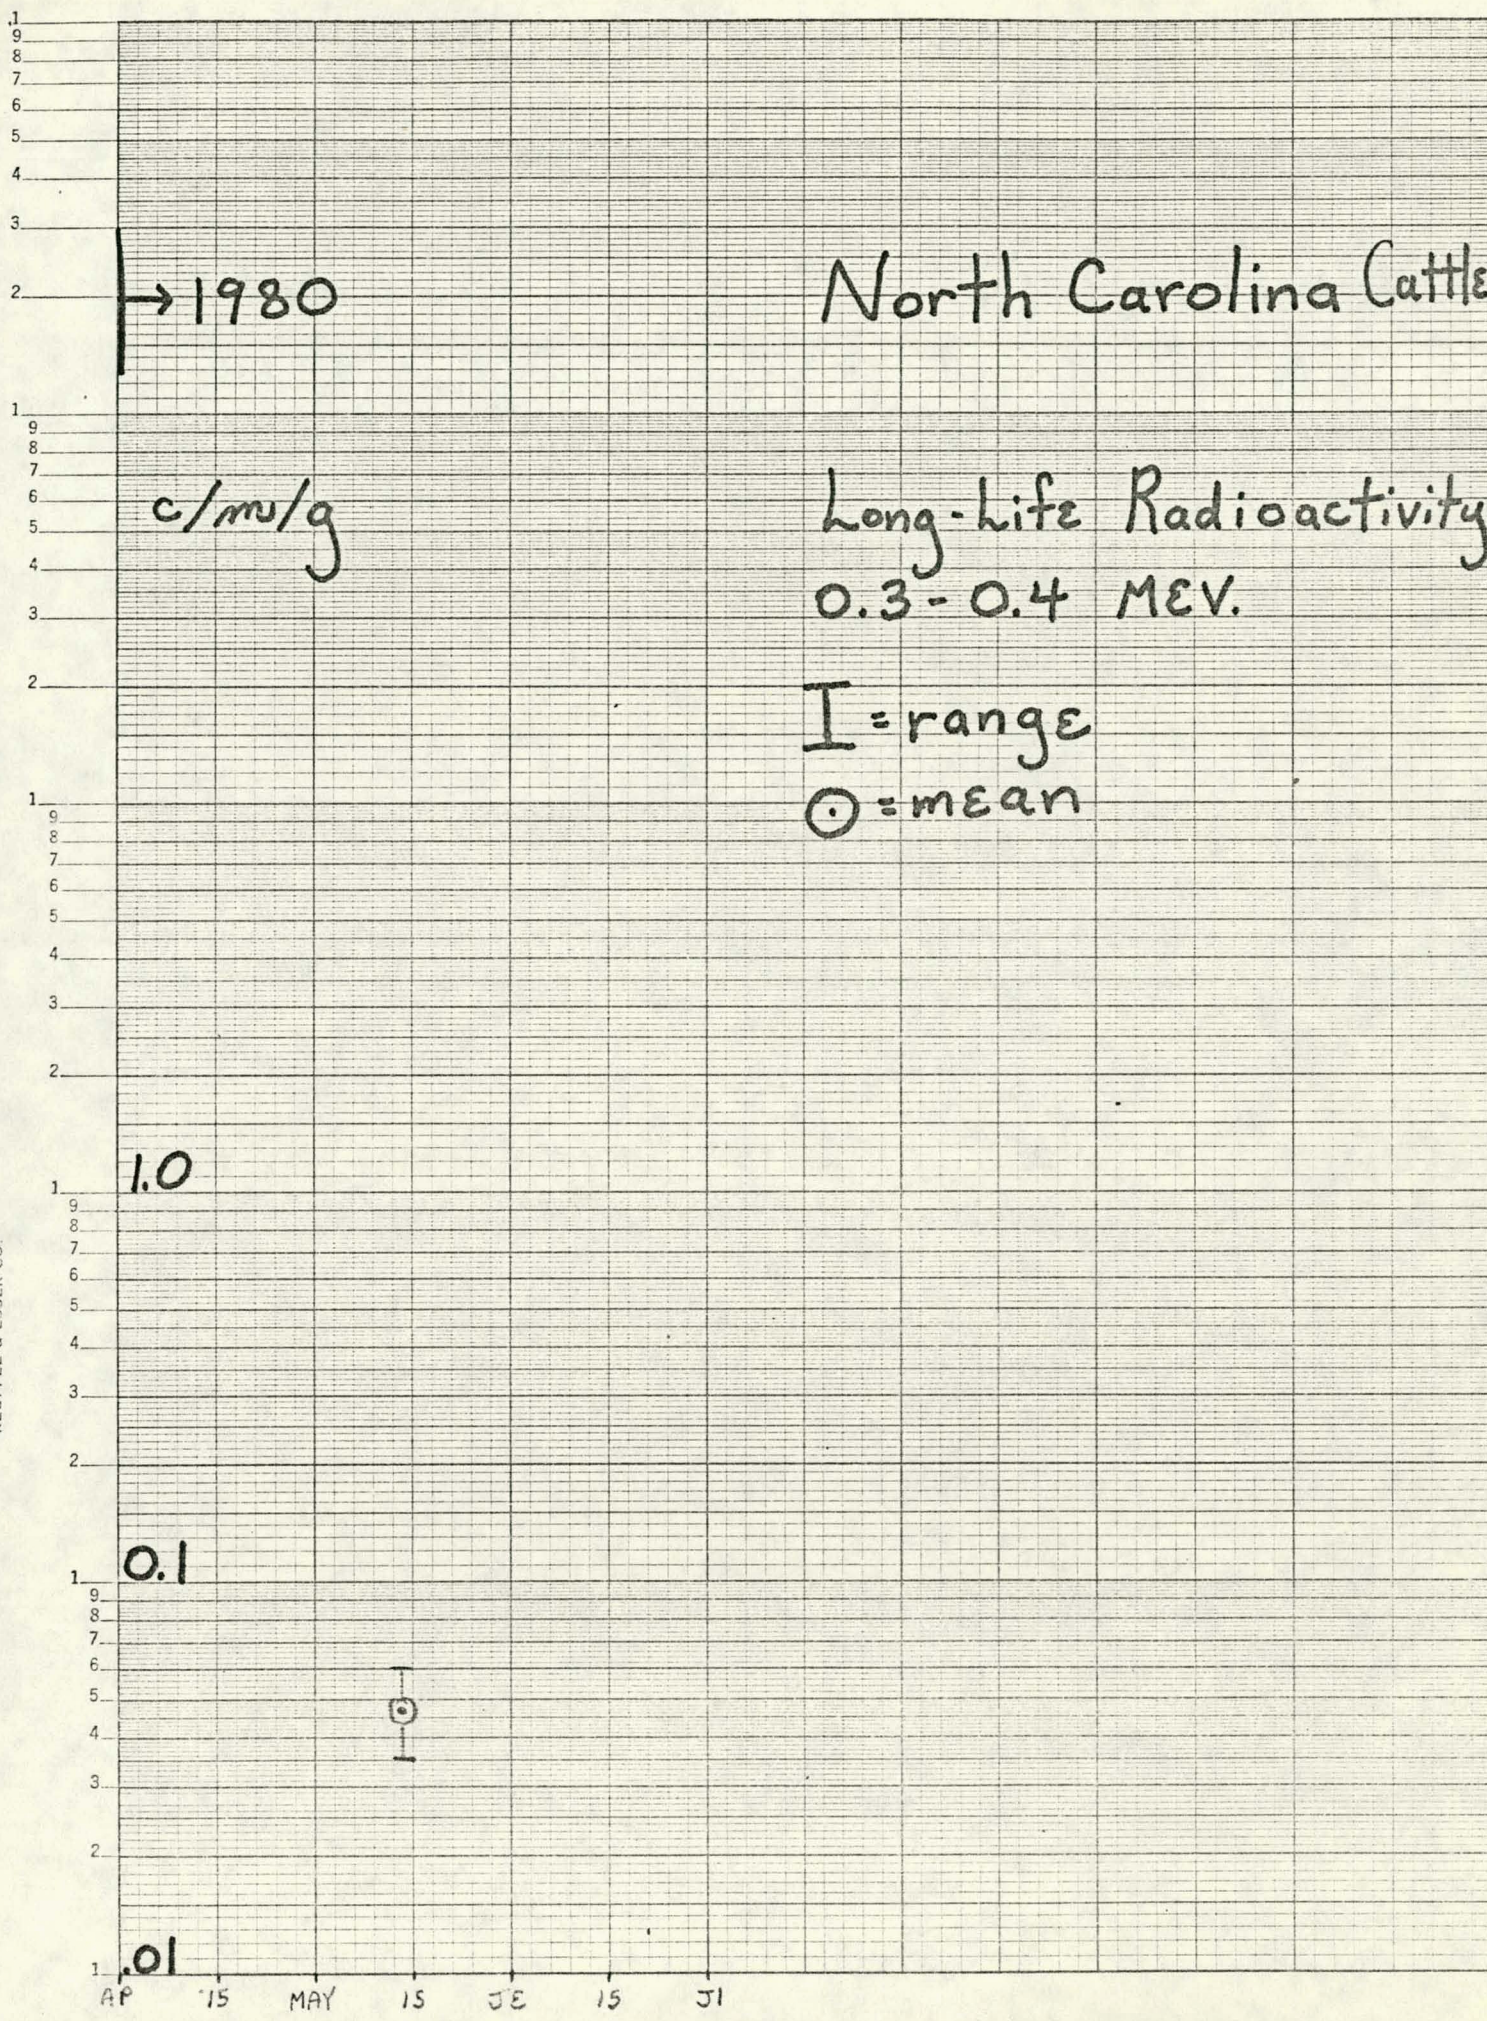 .1
9
8
7
6
5
4
3
2
1
9
8
7
6
5
4
3
2
1
9
8
7
6
5
4
3
2
1
9
8
7
6
5
4
3
2
1
9
8
7
6
5
4
3
2
1
→1980
North Carolina Cattle
c/m/g
Long-Life Radioactivity
0.3-0.4 MEV.
I = range
⊙ = mean
1.0
0.1
.01
AP 15 MAY 15 JE 15 Jl